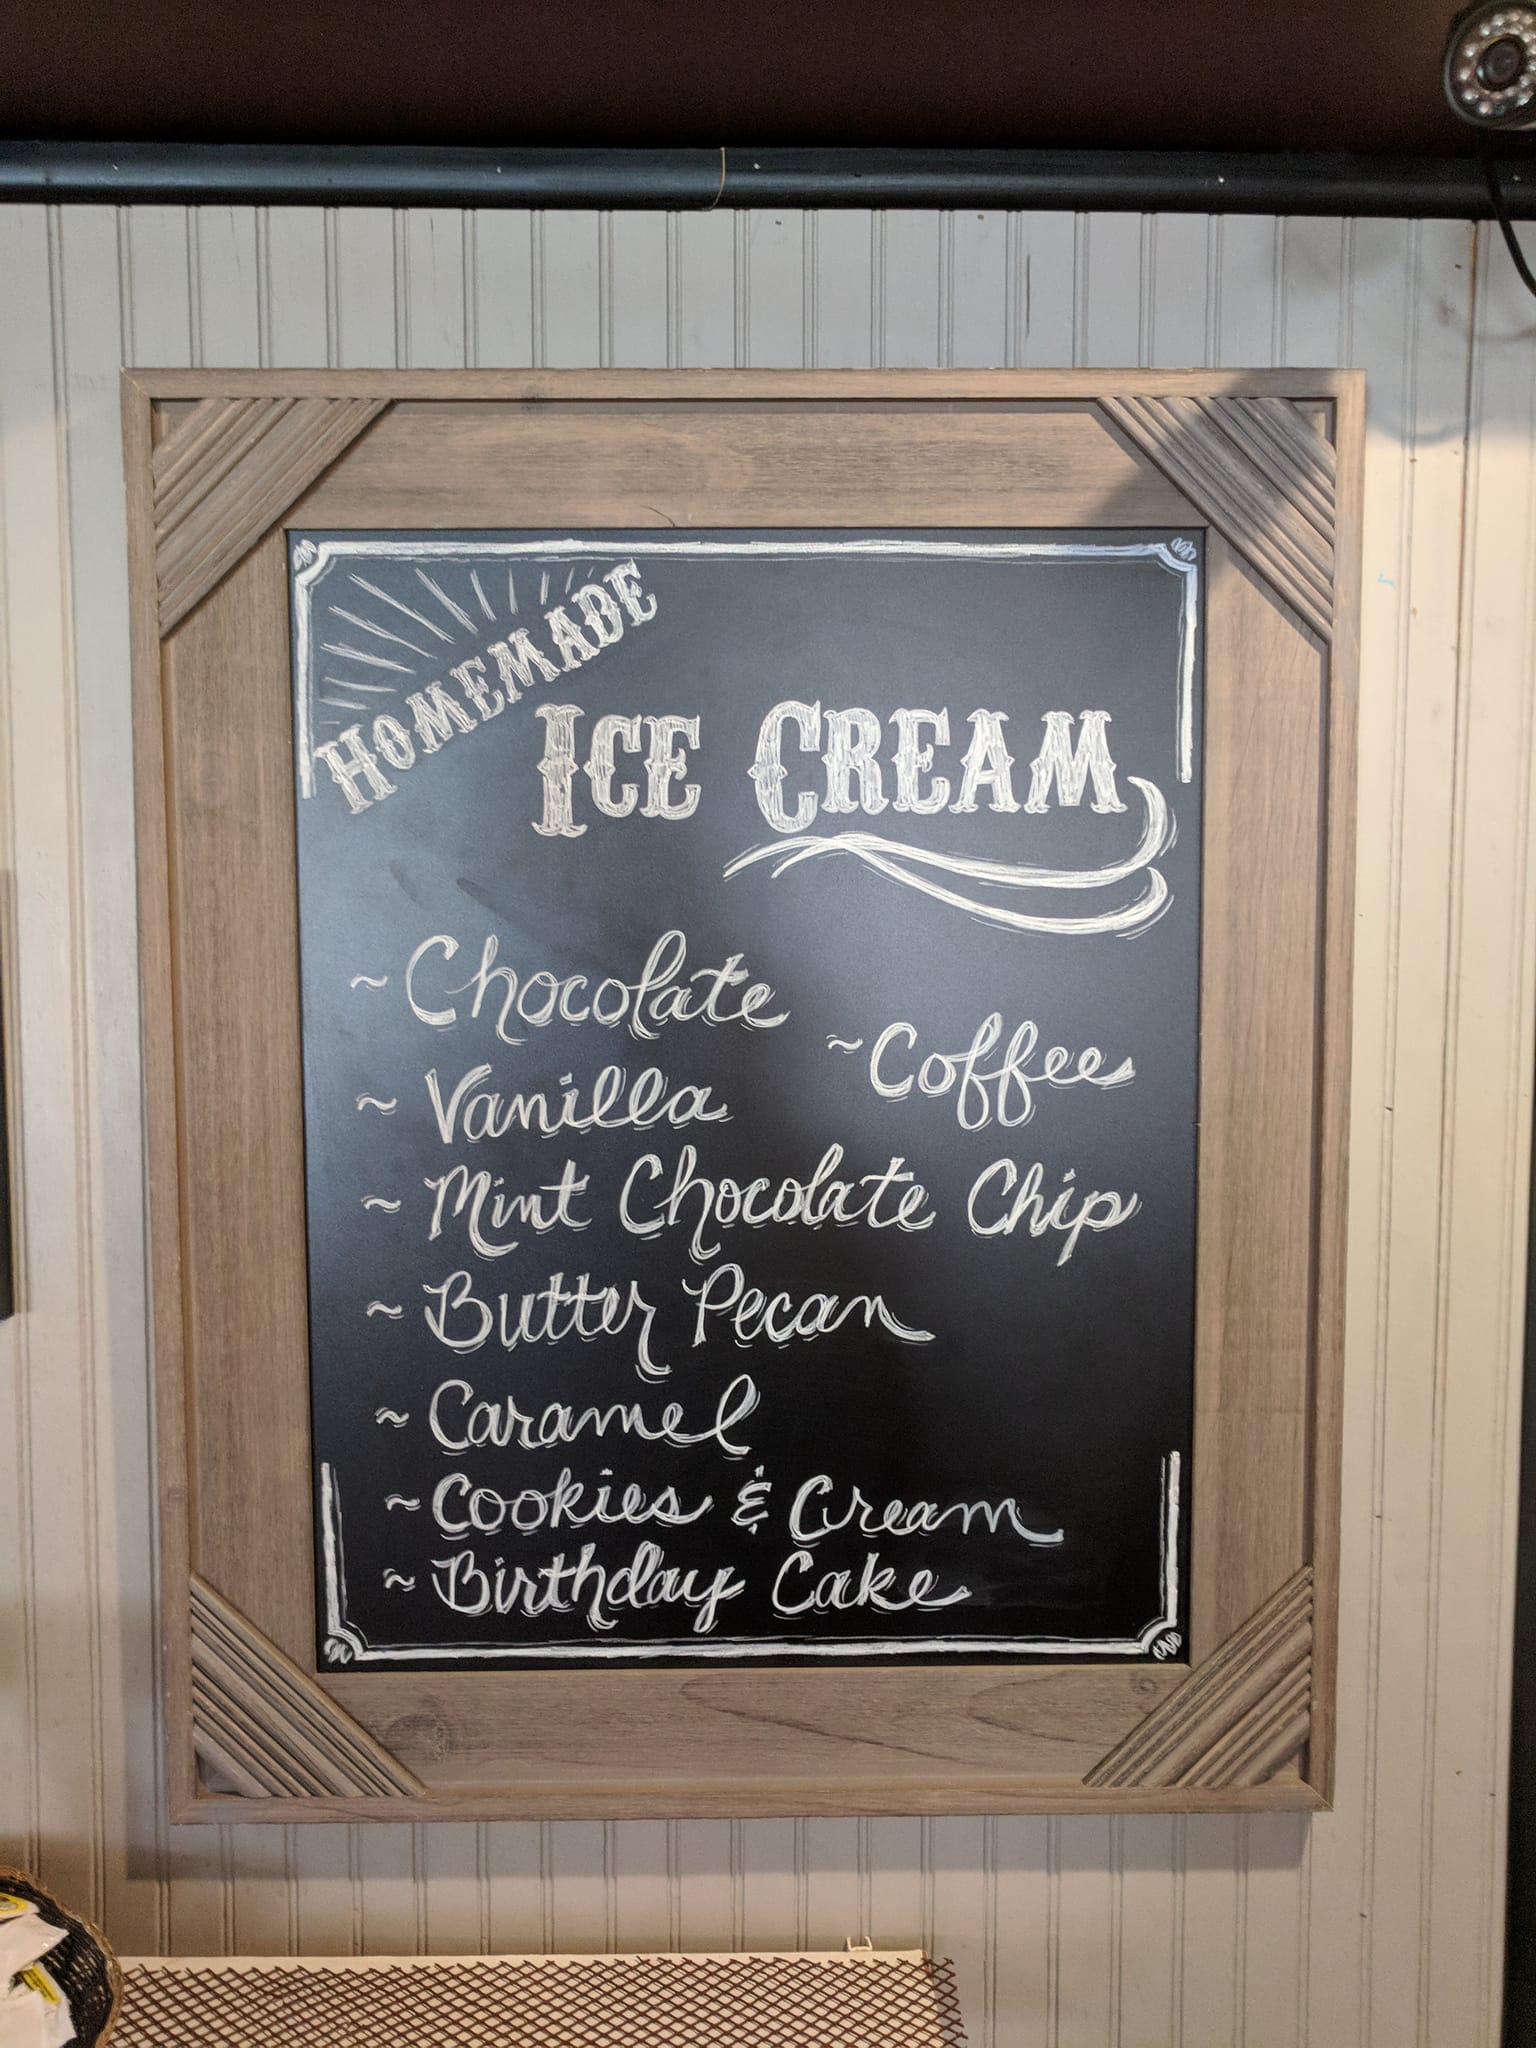 HOMEMADE
ICE CREAM
~ Chocolate
~ Coffee
~ Vanilla
~ Mint Chocolate Chip
~ Butter Pecan
~ Caramel
~ Cookies & Cream
~ Birthday Cake